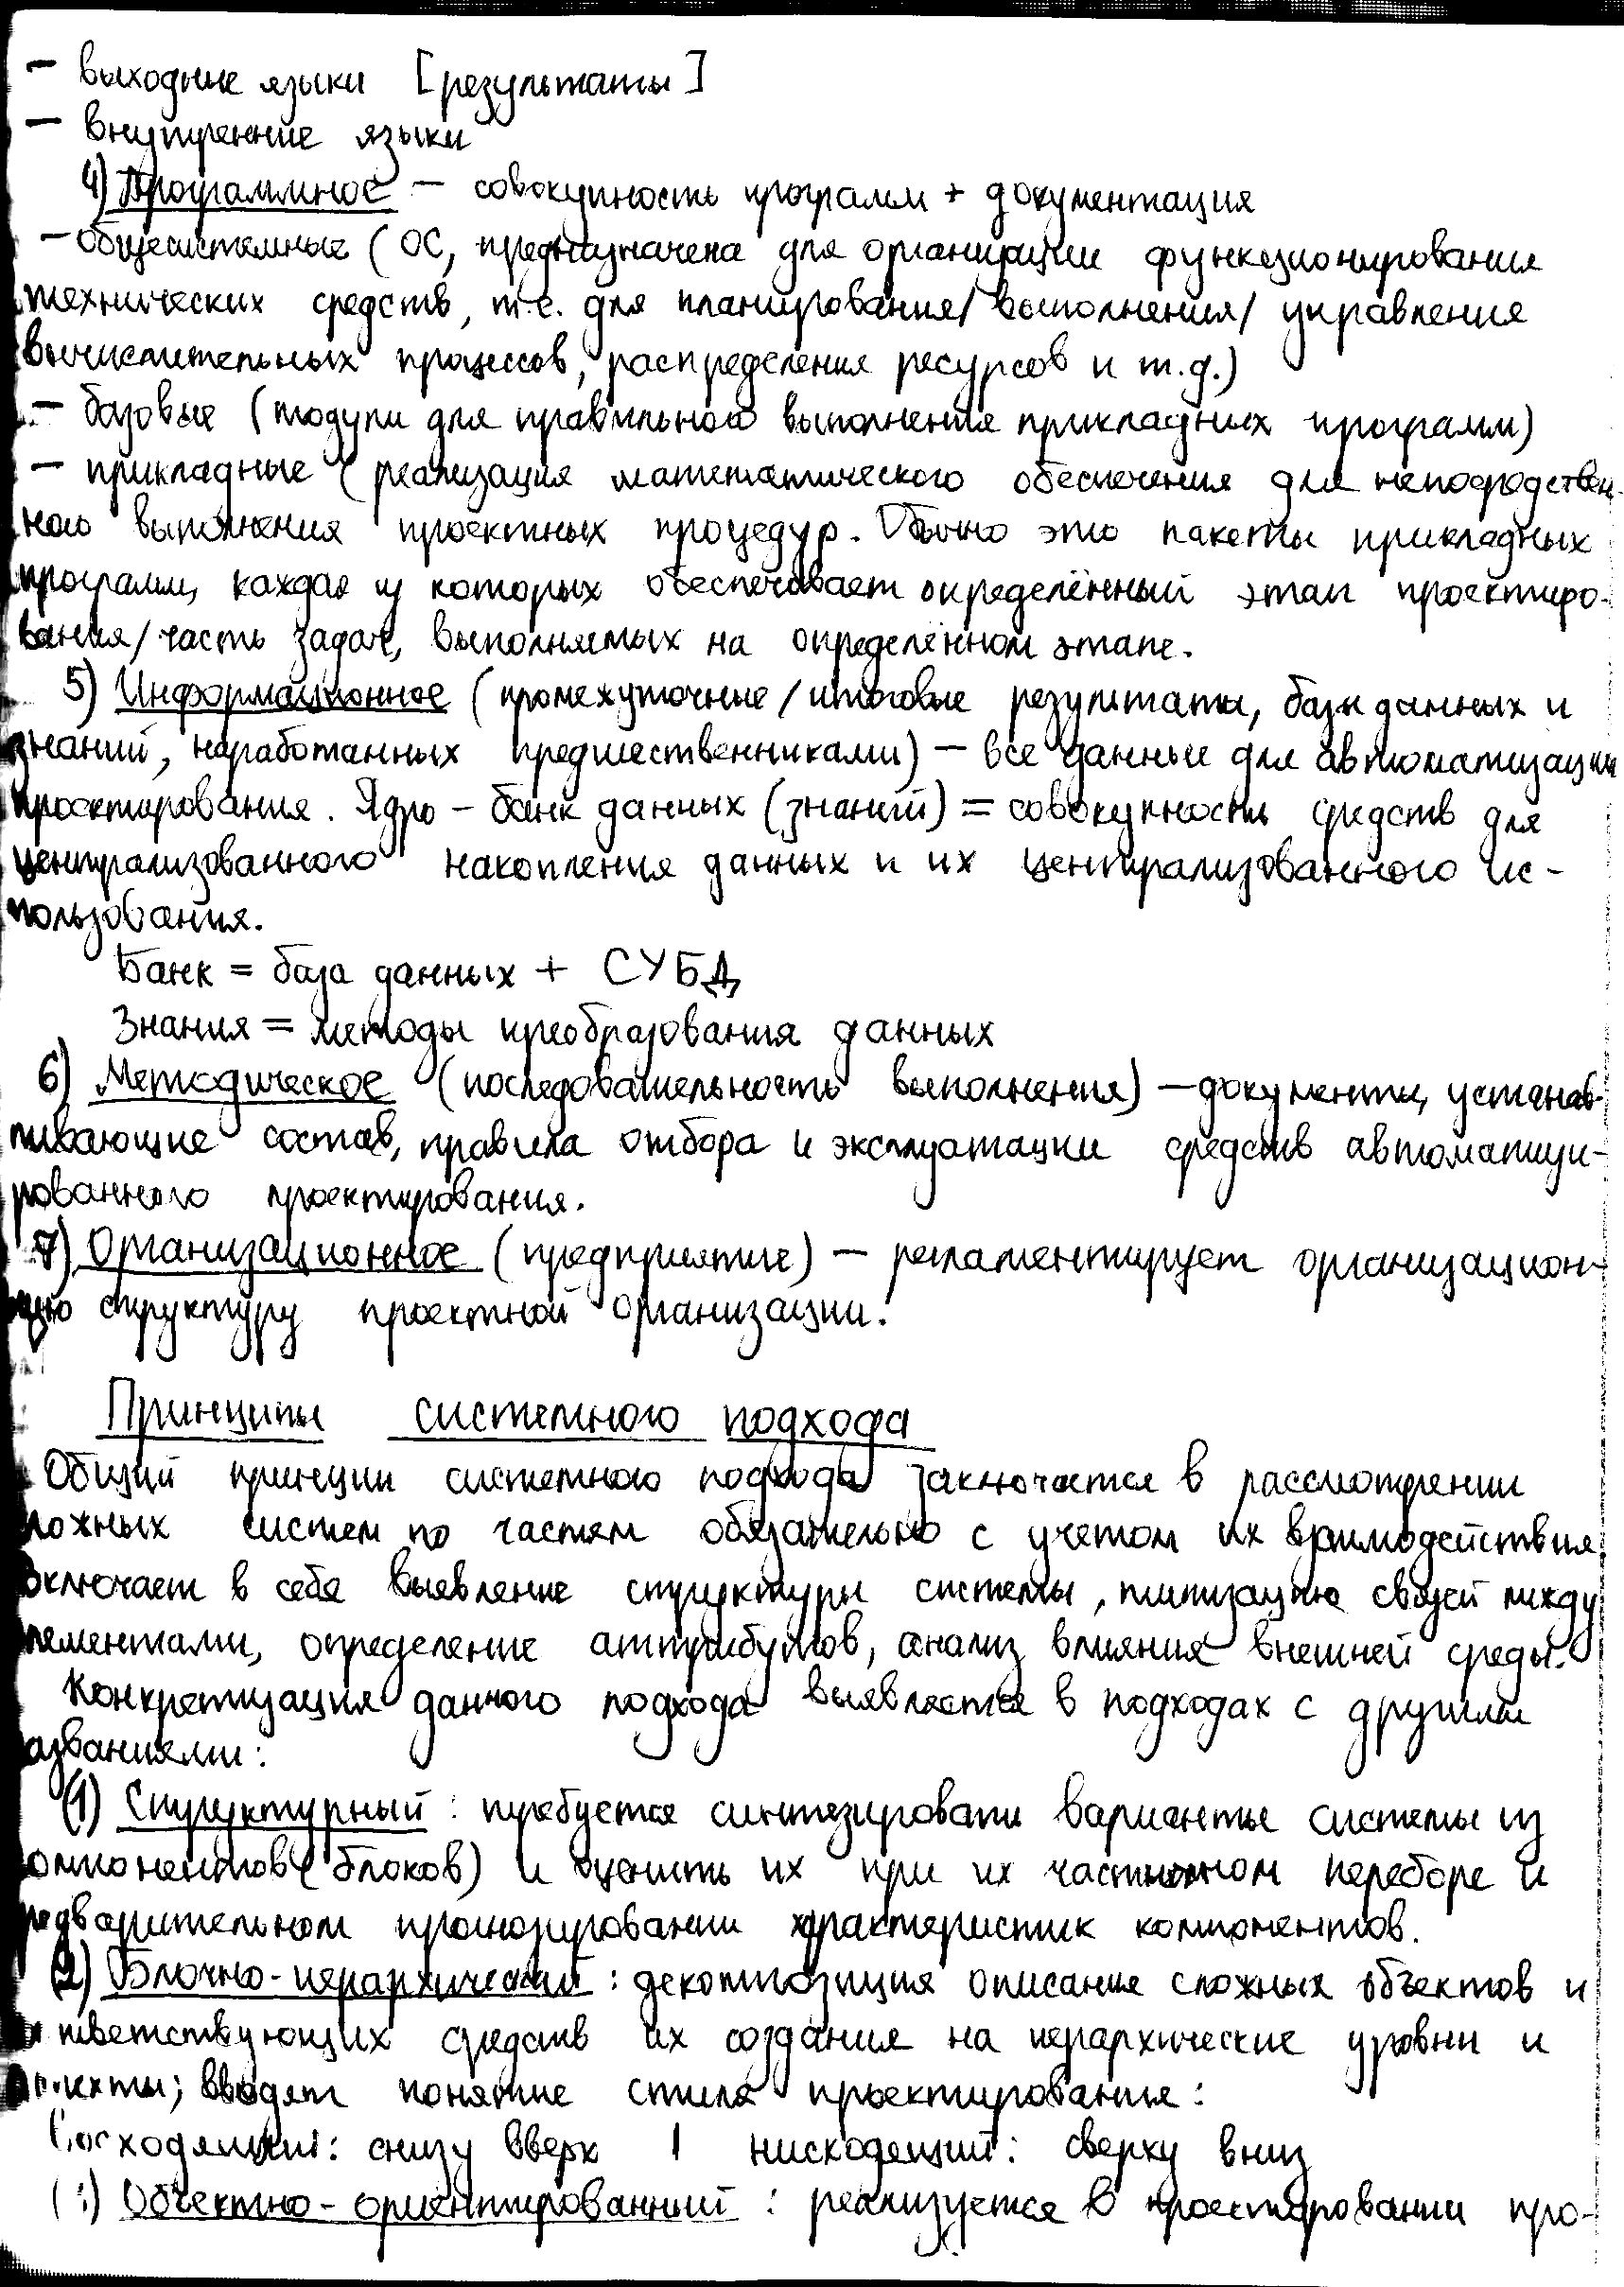 – выходные языки [результаты]
– внутренние языки
4) Программное – совокупность программ + документация
– общесистемные (ОС, предназначена для организации функционирования
технических средств, т.е. для планирования/выполнения/управления
вычислительных процессов, распределения ресурсов и т.д.)
– базовые (модули для правильного выполнения прикладных программ)
– прикладные (реализация математического обеспечения для непосредствен-
ного выполнения проектных процедур. Обычно это пакеты прикладных
программ, каждая из которых обеспечивает определённый этап проектиро-
вания/часть задач, выполняемых на определённом этапе.
5) Информационное (промежуточные/итоговые результаты, базы данных и
знаний, наработанных предшественниками) – все данные для автоматизации
проектирования. Ядро – банк данных (знаний) = совокупность средств для
централизованного накопления данных и их централизованного ис-
пользования.
Банк = база данных + СУБД
Знания = методы преобразования данных
6) Методическое (последовательность выполнения) – документы, устанав-
ливающие состав, правила отбора и эксплуатации средств автоматизи-
рованного проектирования.
7) Организационное (предприятие) – регламентирует организацион-
ную структуру проектной организации.
Принципы системного подхода
Общий принцип системного подхода заключается в рассмотрении
ложных систем по частям обязательно с учетом их взаимодействия.
Включает в себя выявление структуры системы, типизацию связей между
лементами, определение аттрибутов, анализ влияния внешней среды.
Конкретизация данного подхода выявляется в подходах с другими
азваниями:
(1) Структурный: требуется синтезировать варианты системы из
омпонентов (блоков) и оценить их при их частичном переборе и
редварительном прогнозировании характеристик компонентов.
(2) Блочно-иерархический: декомпозиция описание сложных объектов и
тветствующих средств их создания на иерархические уровни и
аспекты; вводят понятие стиля проектирования:
Восходящий: снизу вверх | нисходящий: сверху вниз
(3) Объектно-ориентированный: реализуется в проектировании про-